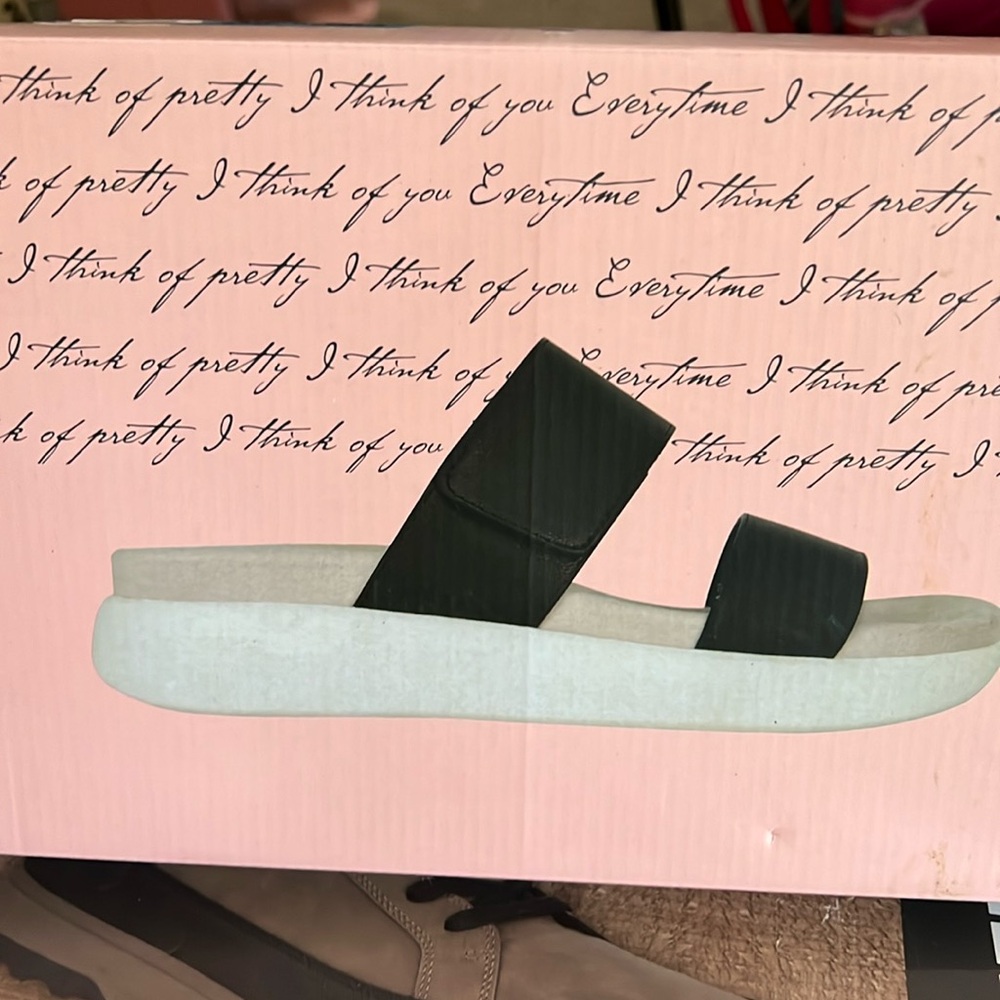 think of pretty I think of you Everytime I think of p
k of pretty I think of you Everytime I think of pretty
I think of pretty I think of you Everytime I think of p
I think of pretty I think of verytime I think of pre
k of pretty I think of you think of pretty I